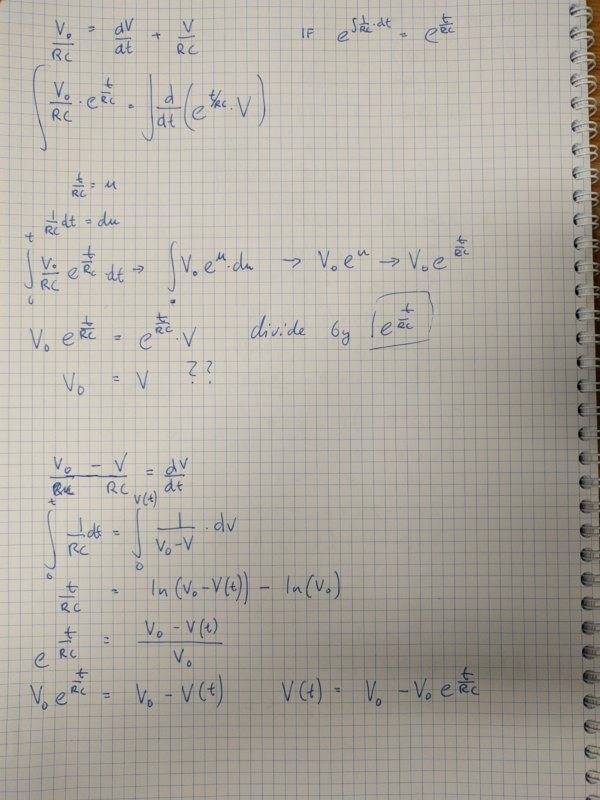 V₀/RC = dV/dt + V/RC    IF e^(∫1/RC·dt) = e^(t/RC)
∫ V₀/RC · e^(t/RC) = ∫ d/dt (e^(t/RC) · V)
t/RC = u
1/RC dt = du
∫₀ᵗ V₀/RC e^(t/RC) · dt → ∫₀ V₀ e^u · du → V₀ e^u → V₀ e^(t/RC)
V₀ e^(t/RC) = e^(t/RC) · V    divide by e^(t/RC)
V₀ = V ??
V₀ - V/RC = dV/dt
∫₀ᵗ 1/RC dt = ∫₀^V(t) 1/(V₀-V) · dV
t/RC = ln(V₀-V(t)) - ln(V₀)
e^(t/RC) = (V₀ - V(t))/V₀
V₀ e^(t/RC) = V₀ - V(t)    V(t) = V₀ - V₀ e^(t/RC)